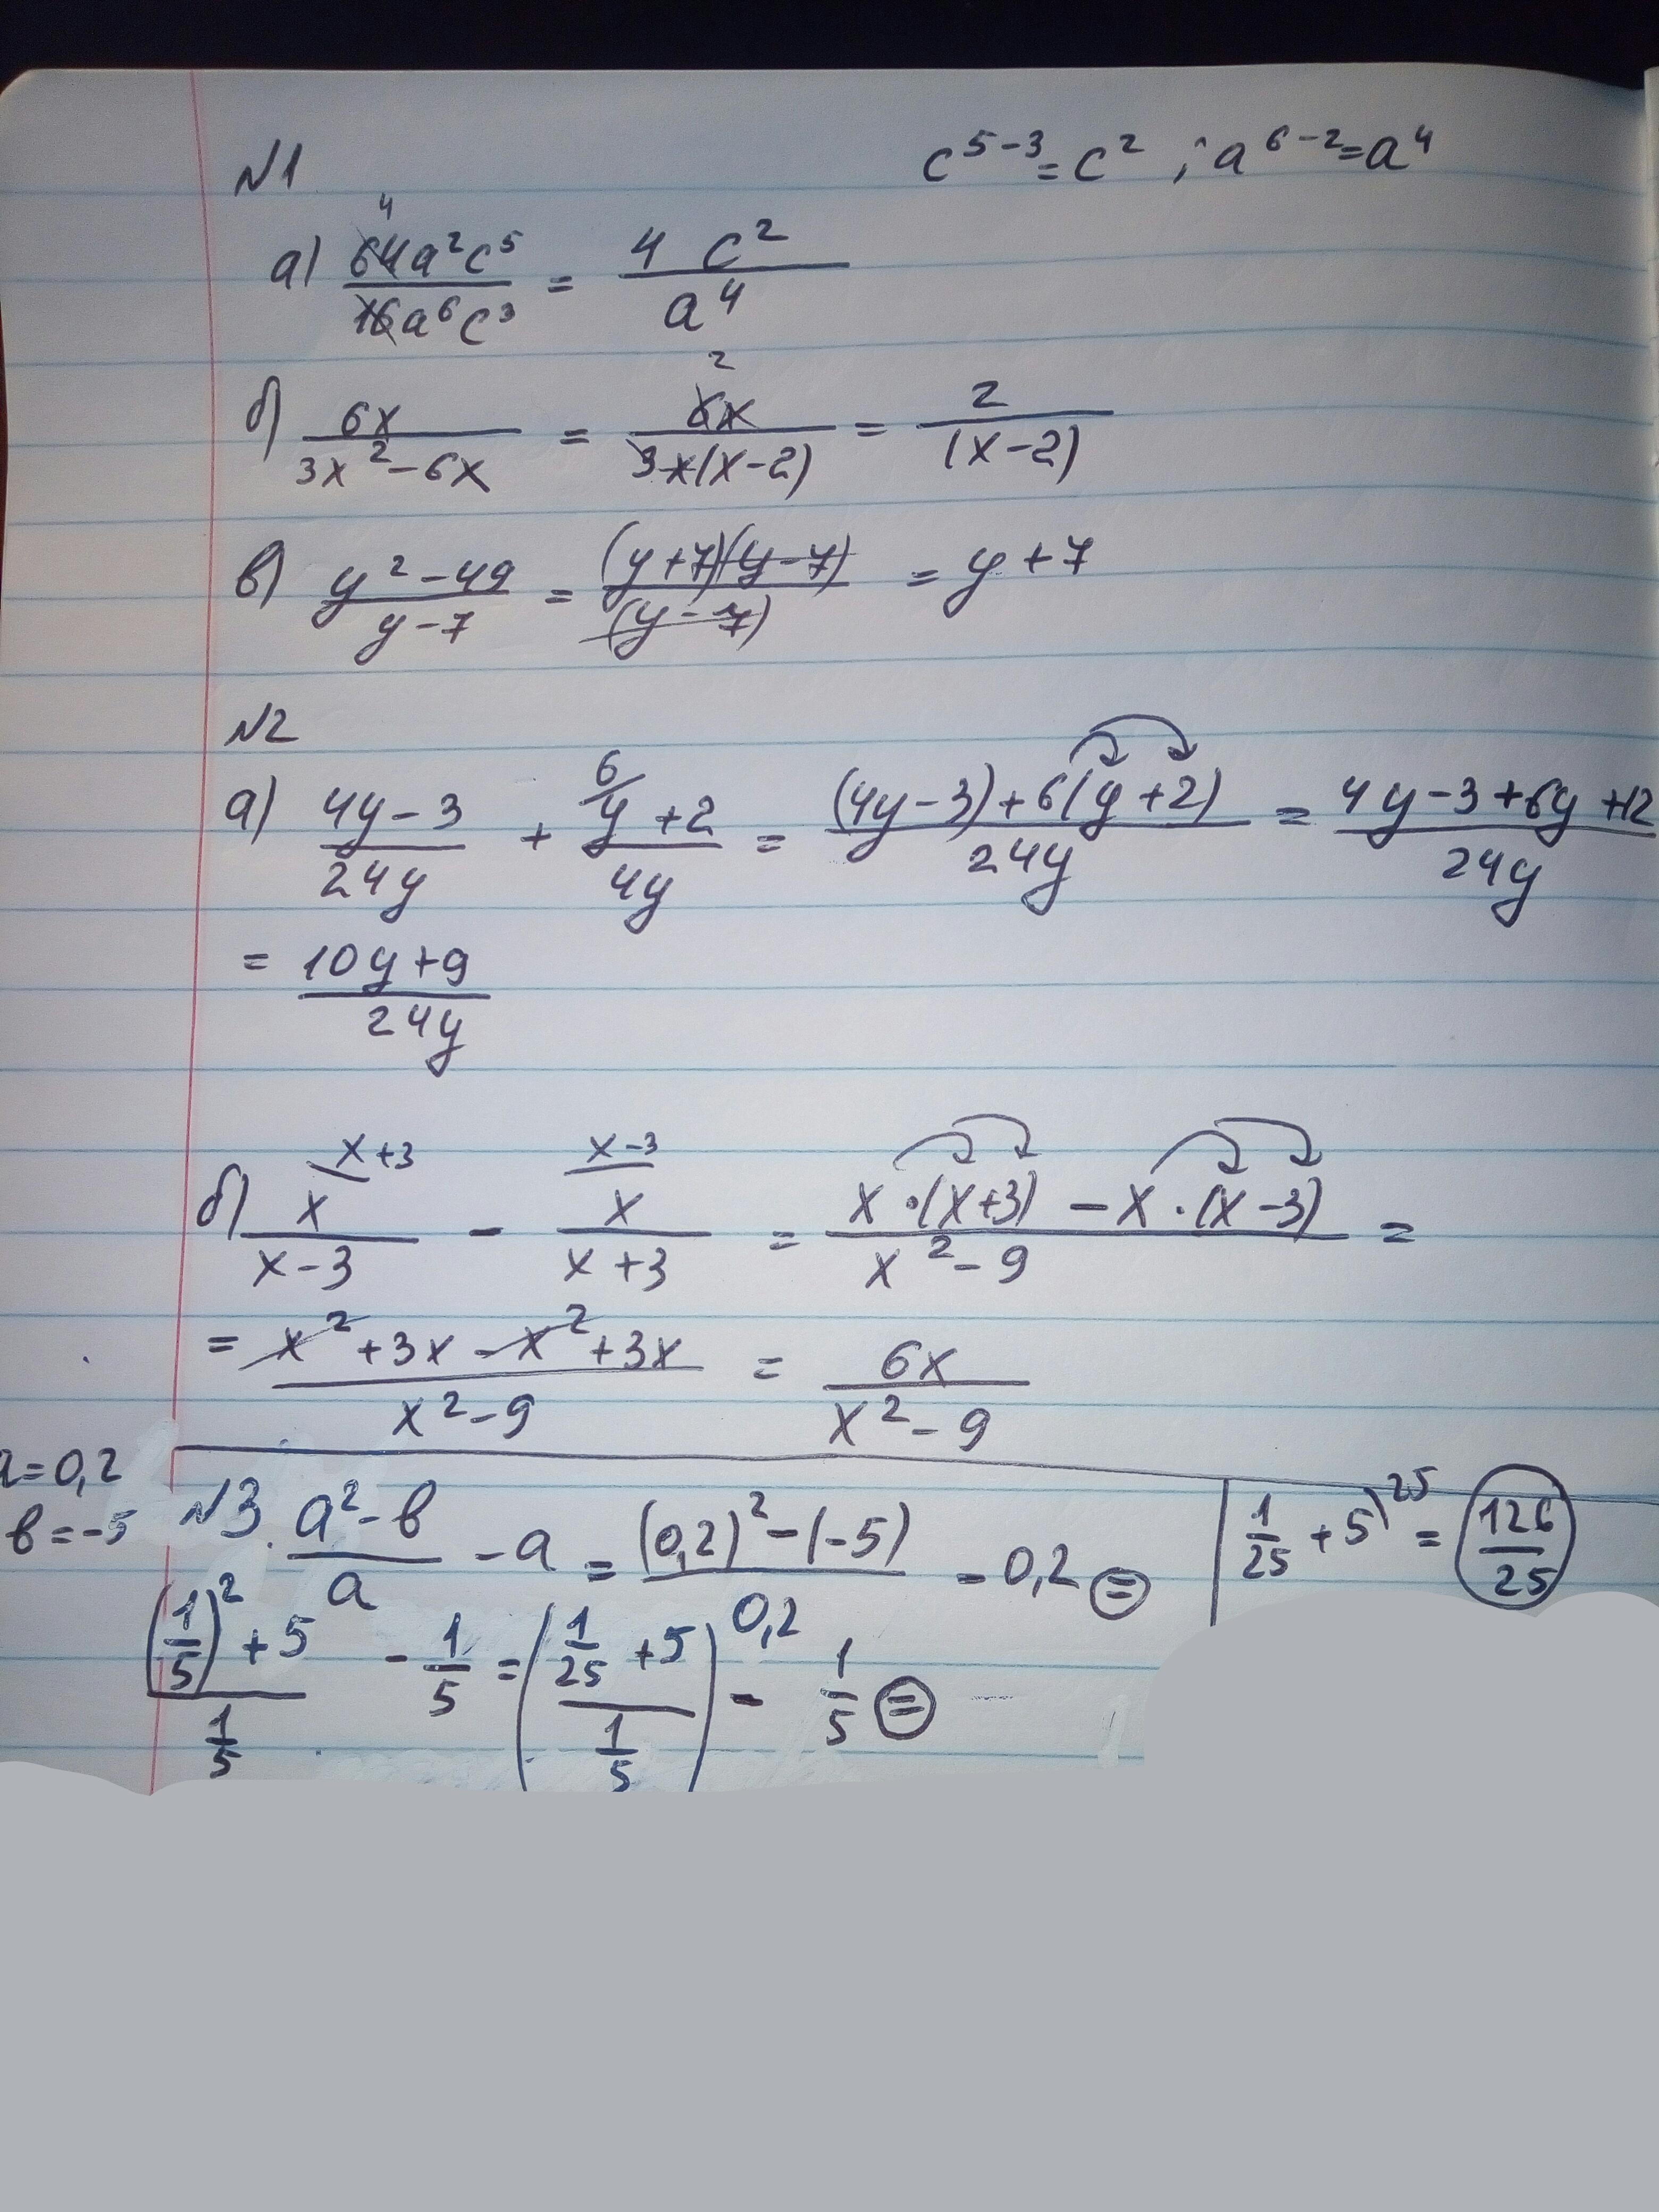 N1
c^(5-3) = c^2 ; a^(6-2) = a^4
а) 64a^2c^5 / 16a^6c^3 = 4c^2 / a^4
4
б) 6x / (3x^2-6x) = 6x / 3x(x-2) = 2 / (x-2)
2
в) (y^2-49) / (y-7) = (y+7)(y-7) / (y-7) = y+7
N2
а) (4y-3) / 24y + (y+2) / 4y = ((4y-3)+6(y+2)) / 24y = (4y-3+6y+12) / 24y
6
= (10y+9) / 24y
x+3 x-3
б) x / (x-3) - x / (x+3) = (x·(x+3) - x·(x-3)) / (x^2-9) =
= (x^2+3x-x^2+3x) / (x^2-9) = 6x / (x^2-9)
a=0,2
b=-5
N3. (a^2-b) / a - a = ((0,2)^2-(-5)) / 0,2 - 0,2 =
1/25 + 5)^25 = 126/25
((1/5)^2+5) / (1/5) - 1/5 = ((1/25+5) / (1/5)) - 1/5 =